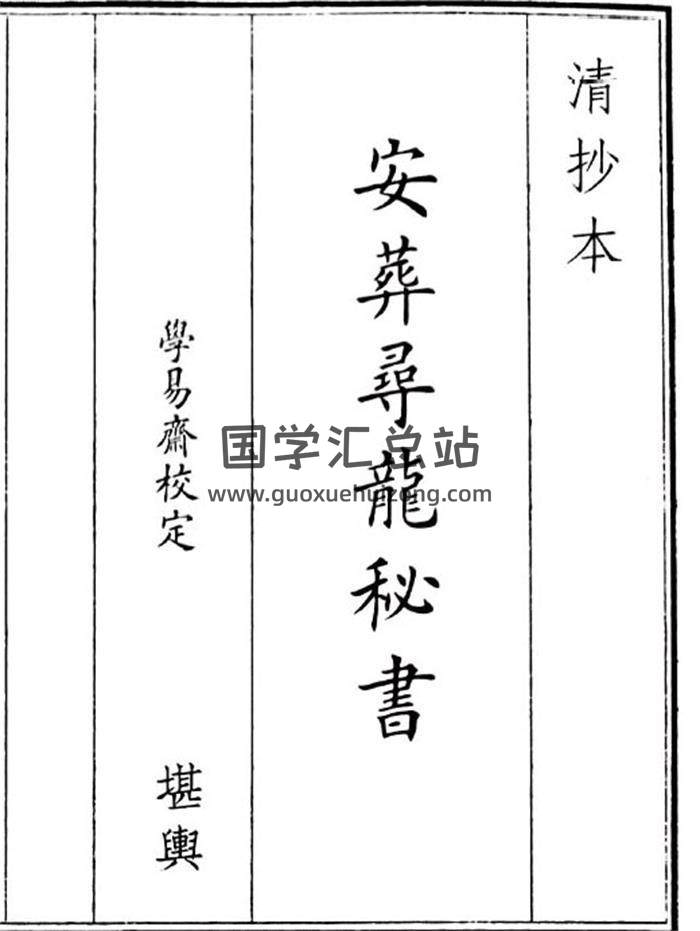 清抄本
安葬尋龍秘書
學易齋校定
堪輿
国学汇总站
www.guoxuehuizong.com